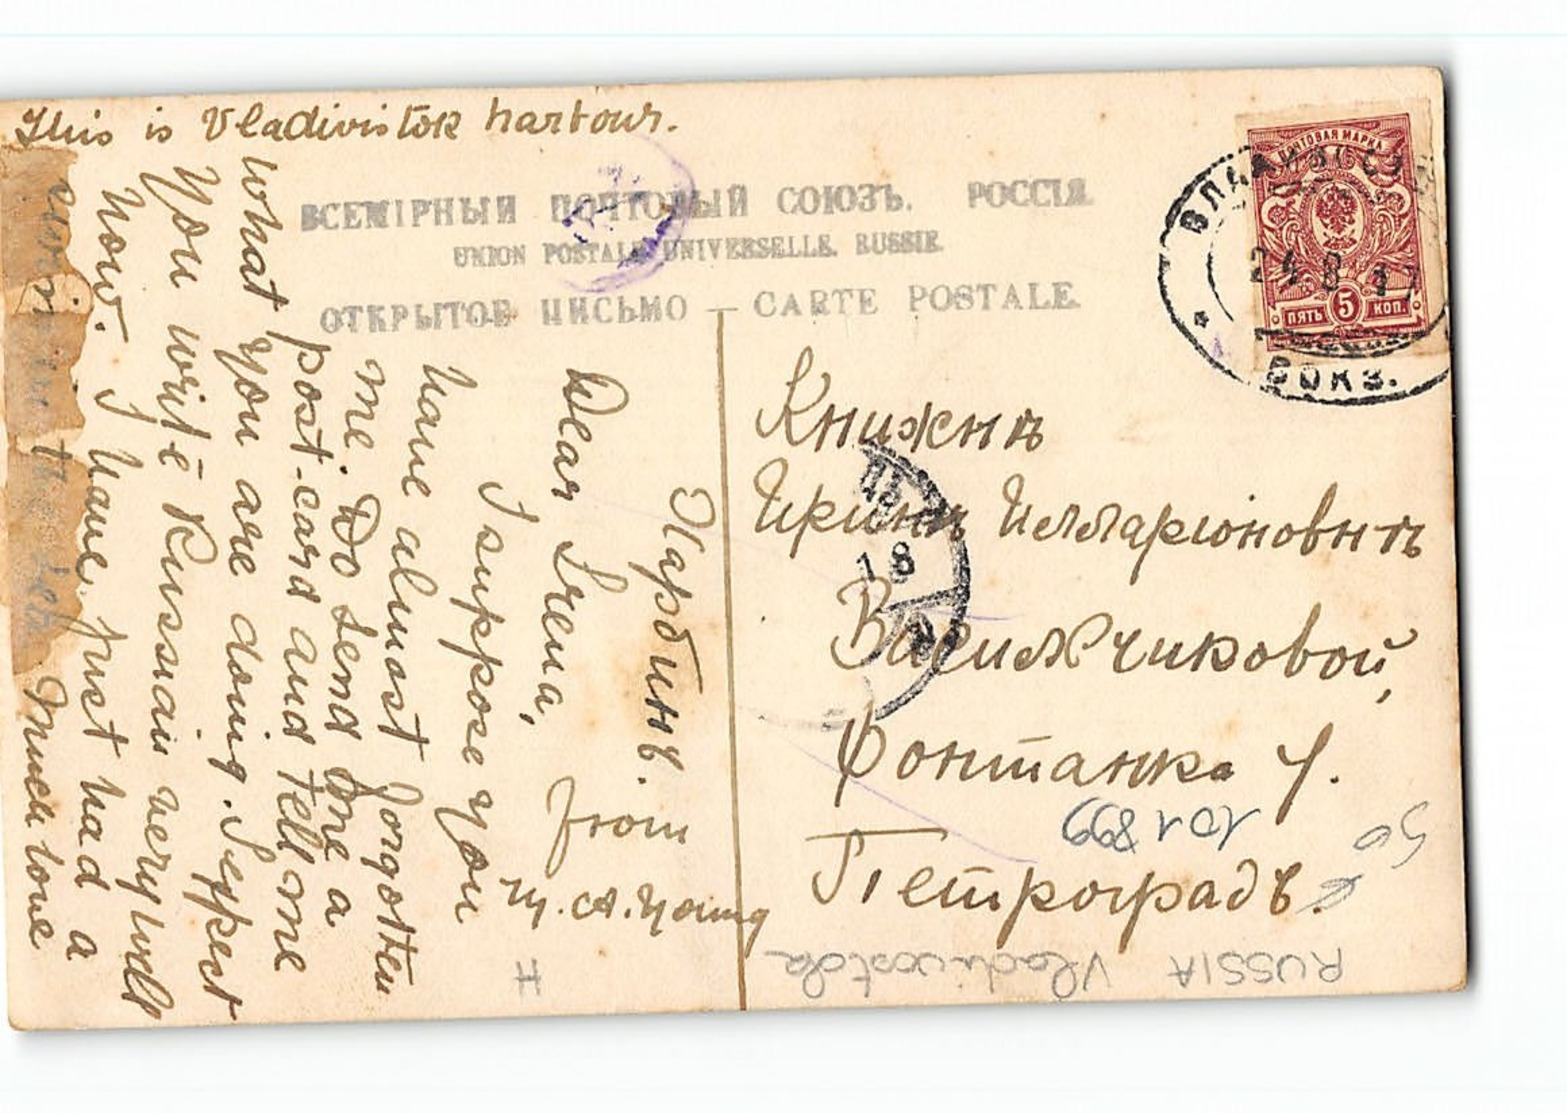 This is Vladivistok harbour.
ВСЕМІРНЫЙ ПОЧТОВЫЙ СОЮЗЪ. РОССІЯ.
UNION POSTALE UNIVERSELLE. RUSSIE.
ОТКРЫТОЕ ПИСЬМО — CARTE POSTALE.
ПОЧТОВАЯ МАРКА
ПЯТЬ 5 КОП.
24 8 17
ВОКЗ.
Харбинъ.
Dear Irena,
I suppose you
have almost forgotten
me. Do send me a
post-card and tell me
what you are doing. I expect
you write Russian very well
now. I have just had a
Much love
from
M.A. Young
Княжнѣ
Иринѣ Илларіоновнѣ
Васильчиковой,
Фонтанка 7.
Петроградъ.
18
101899
50
RUSSIA Vladivostok
H